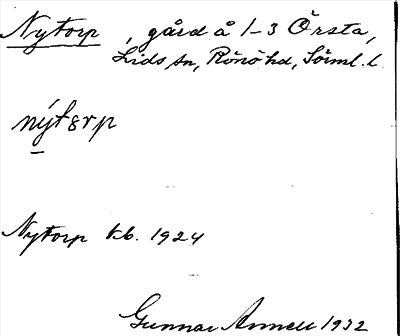 Nytorp, gård å 1-3 Örsta,
Lids sn, Rönö hd, Söml. l.
nýtɛrp
Nytorp kb. 1924
Gunnar Annell 1932